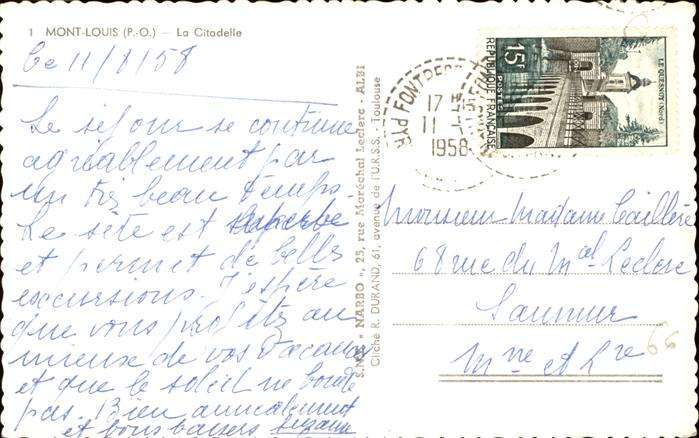 1 MONT-LOUIS (P.-O.) — La Citadelle
Ce 11/8/58
Le séjour se continue
agréablement par
un très beau temps.
Le site est superbe
et permet de belles
excursions. J'espère
que vous profitez au
mieux de vos vacances
et que le soleil ne boude
pas. Bien amicalement
et bons baisers Suzanne
S.N.E.S. " NARBO ", 25, rue Maréchal Leclerc - ALBI
Cliché R. DURAND, 61, avenue de l'U.R.S.S. - Toulouse
FONT
17 45
11 -
1958
PYR
15F
REPUBLIQUE FRANÇAISE
POSTES
LE QUESNOY-(Nord)
Monsieur Madame Caillère
68 rue du Mal Leclerc
Saumur
Mne et Lre
66